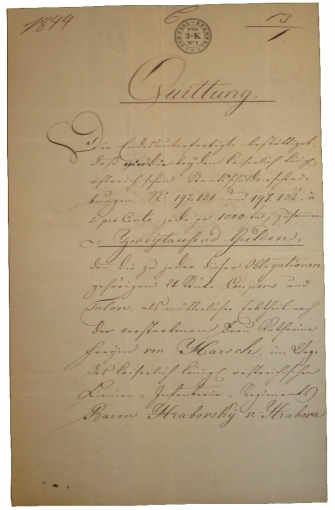 1844
13
1
3·K
Quittung.
Die Endesunterfertigte bestättiget,
daß ihr die beyden kaiserlich königl.
östreichischen Staatsschuldverschrei-
bungen No 197.131 und 197.132. à
5 pro Cento, jede zu 1000 fl, zusammen
Zweytausend Gulden,
den die zu jeder dieser Obligationen
gehörigen 21 Stück Coupons und
Talon, als mütterliches Erbtheil nach
der verstorbenen Frau
Freyin von Harsch, im Wege
des kaiserlich königl. oestreichischen
Linien-Infanterie-Regiments
Baron Hrabovsky v Hrabova